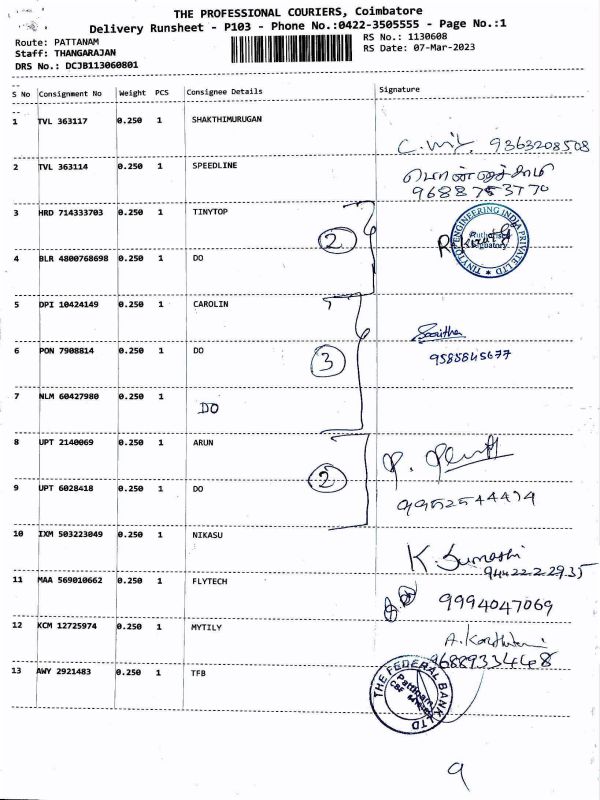 THE PROFESSIONAL COURIERS, Coimbatore
Delivery Runsheet - P103 - Phone No.:0422-3505555 - Page No.:1
Route: PATTANAM
RS No.: 1130608
Staff: THANGARAJAN
RS Date: 07-Mar-2023
DRS No.: DCJB113060801
S No Consignment No Weight PCS Consignee Details Signature
1 TVL 363117 0.250 1 SHAKTHIMURUGAN
9363208508
2 TVL 363114 0.250 1 SPEEDLINE
9688753770
3 HRD 714333703 0.250 1 TINYTOP
TINYTOP ENGINEERING INDIA PRIVATE LTD
Authorised Signatory
2
4 BLR 4800768698 0.250 1 DO
5 DPI 10424149 0.250 1 CAROLIN
Saritha
6 PON 7908814 0.250 1 DO
3
9585845677
7 NLM 60427980 0.250 1 DO
8 UPT 2140069 0.250 1 ARUN
2
9 UPT 6028418 0.250 1 DO
9952544414
10 IXM 503223049 0.250 1 NIKASU
94422-2-2935
11 MAA 569010662 0.250 1 FLYTECH
9994047069
12 KCM 12725974 0.250 1 MYTILY
9688933448
13 AWY 2921483 0.250 1 TFB
THE FEDERAL BANK LTD
9